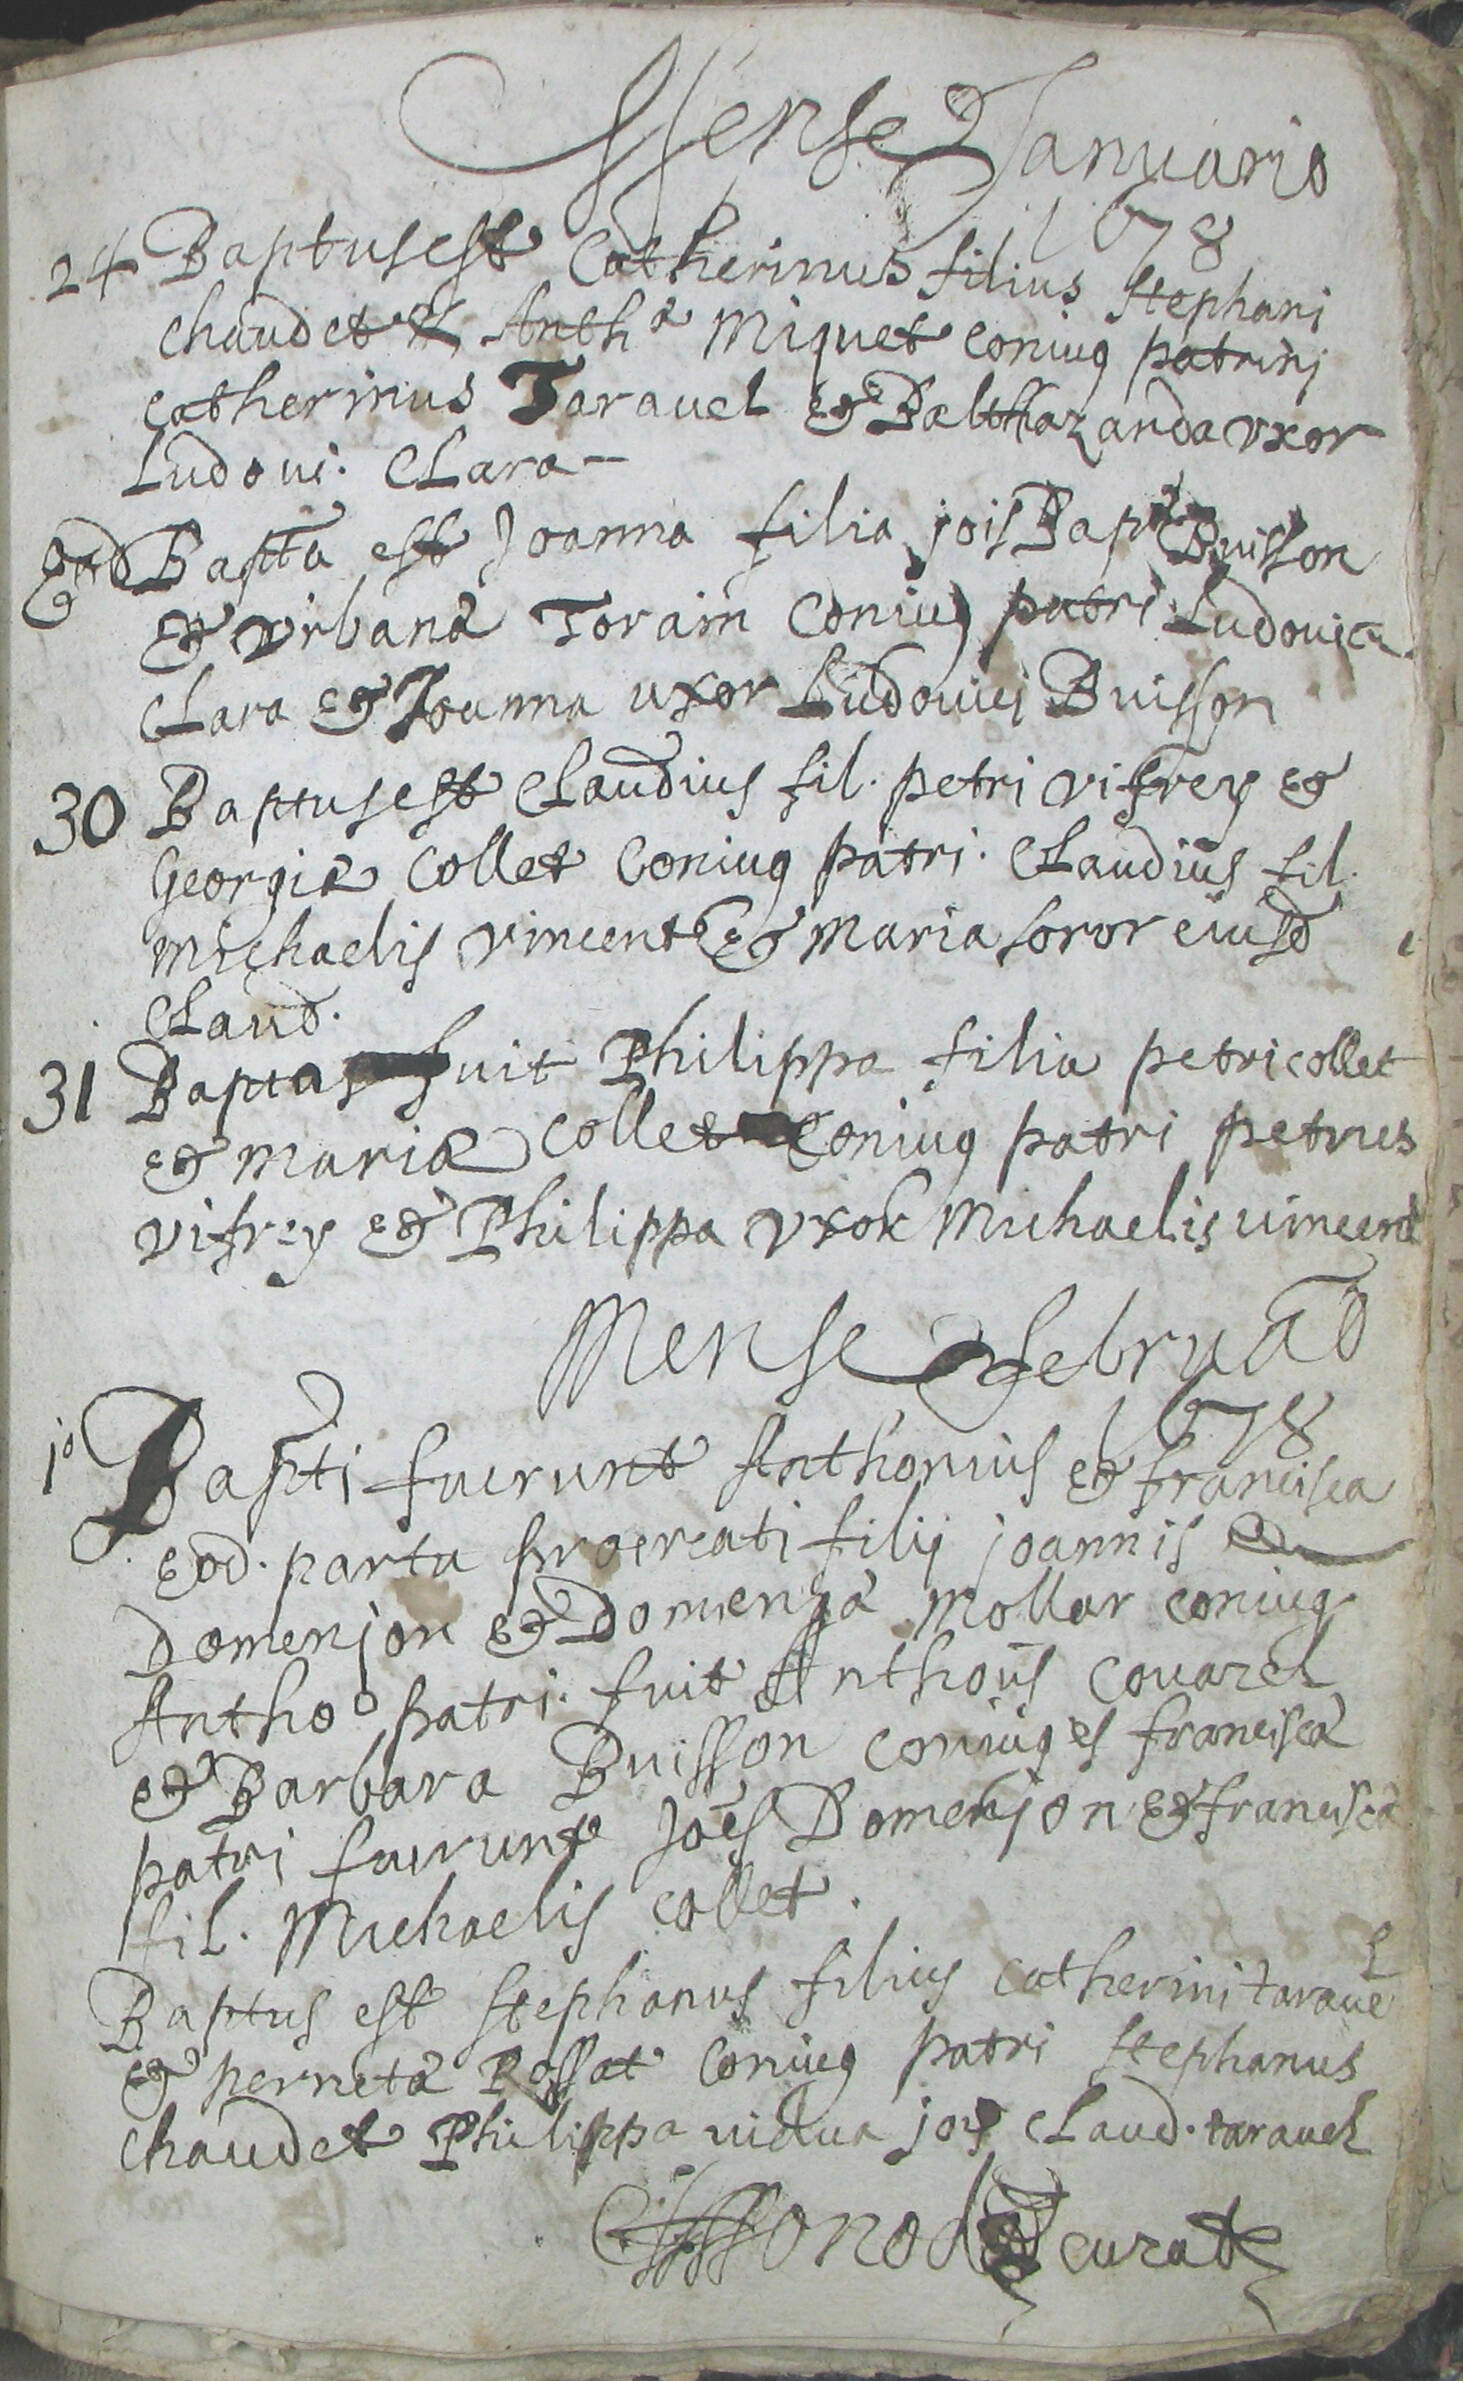 Mense Januario
1678
24 Baptus est Catherinus filius stephani
chaudet & Anthæ Miquet coniug patrini
catherinus Taravel & Balthazarda vxor
Ludovi. Clara
Ead Bapta est Joanna filia jois Bapt Buisson
& Vrbanæ Torain coniug patri Ludovicus
Clara & Joanna uxor Ludovici Buisson
30 Baptus est Claudius fil. petri vifrey &
Georgiæ Collet Coniug patri. Claudius fil.
Michaelis vincent & Maria soror eiusd
Claud.
31 Bapta fuit Philippa filia petri collet
& Mariæ collet Coniug patri petrus
vifrey & Philippa vxor Michaelis vincent
Mense Februaō
1678
1o Bapti fuerunt Anthonius & francisca
eod. partu procreati filij joannis
Domenjon & Domengæ Mollar coniug
Anthoo patri. fuit Anthoūs covarel
& Barbara Buisson coniuges franciscæ
patri fuerunt Joēs Domenjon & francisca
fil. Michaelis collet.
Baptus est stephanus filius catherini taravel
& pernetæ Rossat Coniug patri stephanus
chaudet Philippa vidua jois Claud. taravel
curat